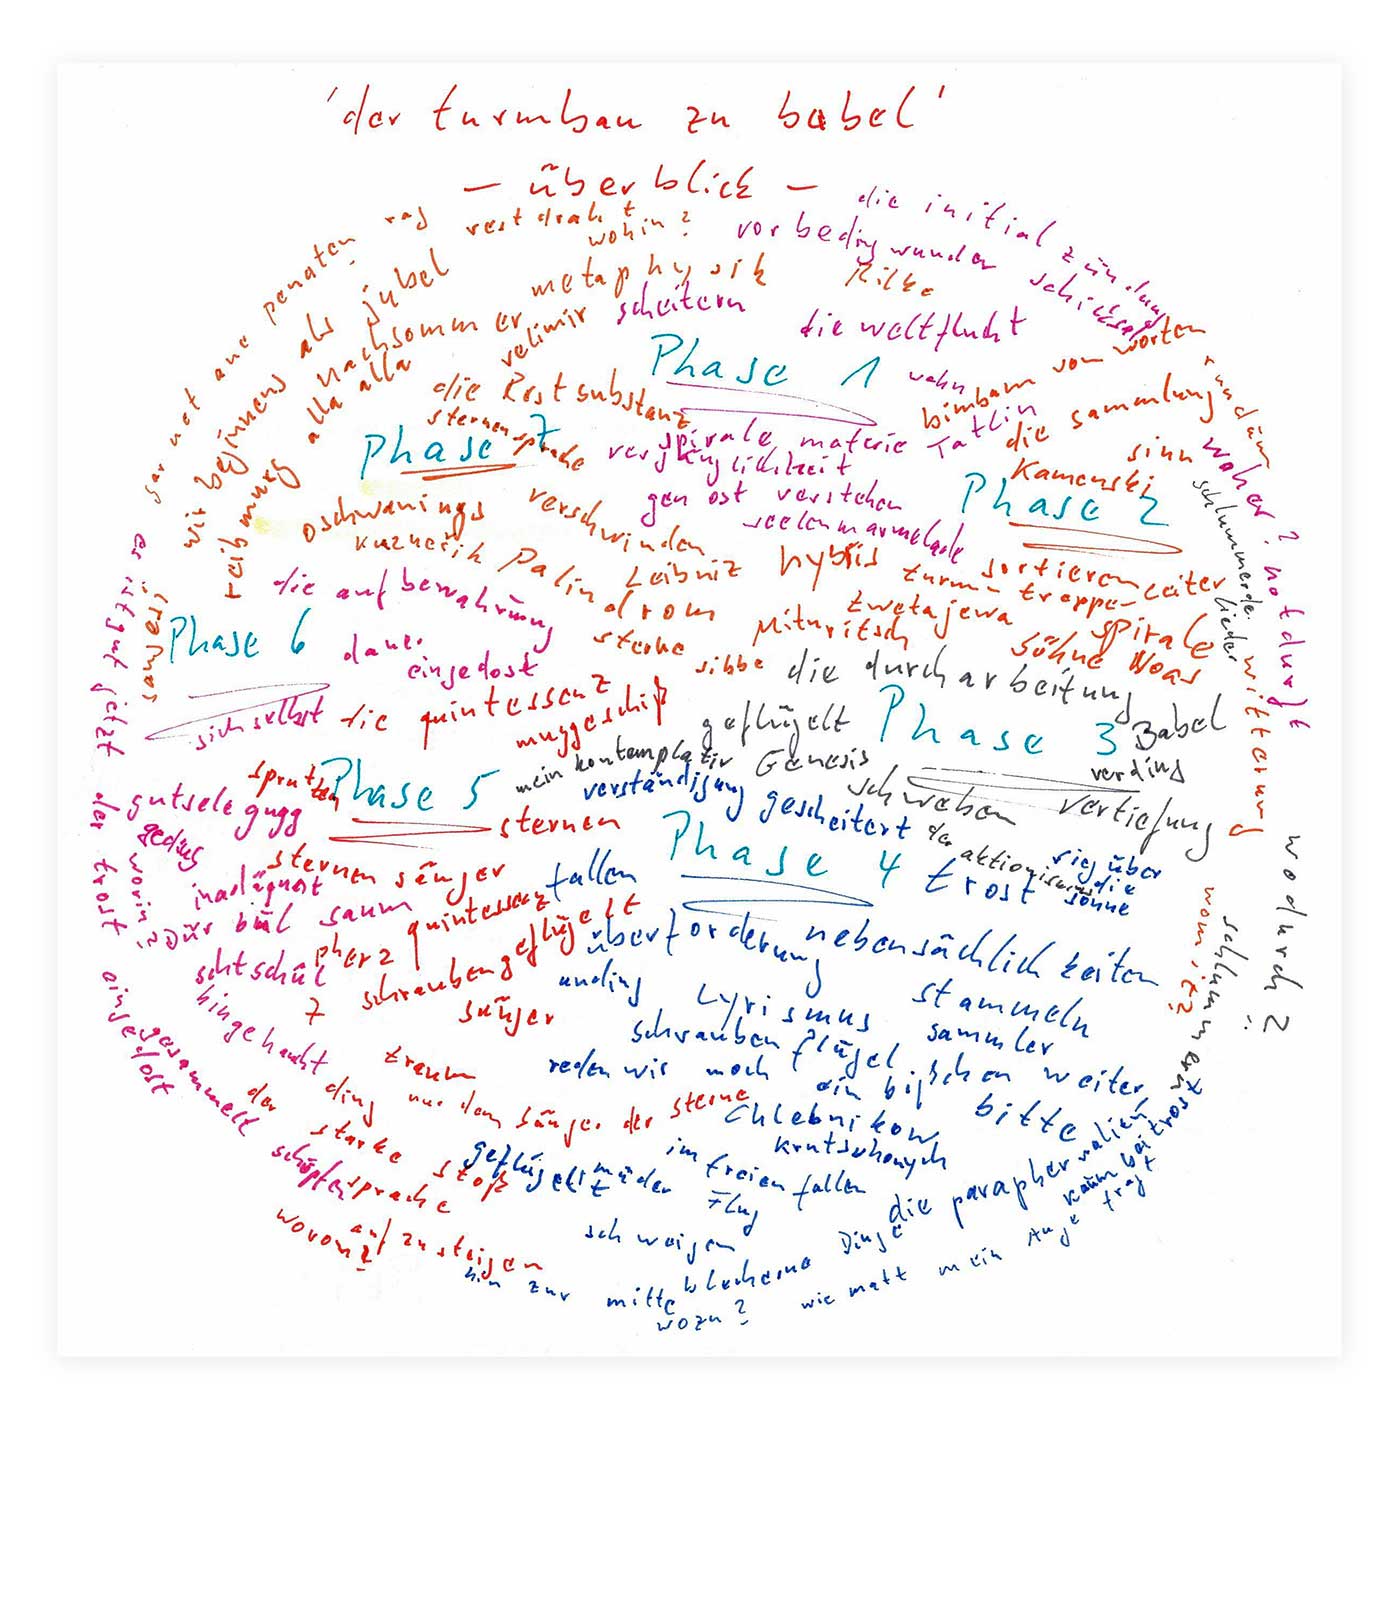 'der turmbau zu babel'
– überblick –
die initialzündung
vorbedingwunder schicksal
Rilke
die weltflucht
scheitern
Phase 1
wahn
spirale materie Tatlin
vergänglichkeit
gen ost verstehen
seelenmarmelade
woher? notdurft
bimbam von worten
rundum
die sammlung
sinn
Kamenski
Phase 2
hybris
sortieren
leiter
turm-treppe-
spirale
zwetajewa
Mituritsch
söhne Noas
witterung
womit?
schlummerde
lieder
die durcharbeitung
geflügelt
Phase 3
Babel
verding
mein kontemplativ Genesis
schweben
vertiefung
der aktionismus
wodurch?
schlummern
verständigung gescheitert
sieg über
die
sonne
Phase 4
trost
fallen
überforderung
nebensächlichkeiten
unding
Lyrismus
stammeln
schraubenflügel
sammler
reden wir noch ein bißchen weiter,
bitte
Chlebnikow
krutschonych
im freien fallen
geflügelt
müder
Flug
schweigen
die paraphernalien
kaum bei trost
blecherne Dinge
wie matt mein Auge tragt
hin zur mitte
wozu?
die quintessenz
muggeschiß
Phase 5
sternen
sternensänger
quintessenz
pherz
geflügelt
7 schrauben
sänger
traum
nur dem sänger der sterne
ding
der
starke
stoß
sprache
aufzusteigen
wovon?
die aufbewahrung
Phase 6
dauer
eingedost
sich selbst
gutsele gugg
gedöns
inadäquat
Dür bül saum
schtschül
hingehaucht
worin?
gesammelt
schöpfen
es ist gut jetzt der trost eingedost
die Restsubstanz
sternensprache
Phase 7
oschwanings
verschwinden
kuznečik Palindrom
Leibniz
sterne
sibbe
velimir
metaphysik
wohin?
restdraht
nachsommer
alla alla
reibmung
wir beginnens als jubel
penaten